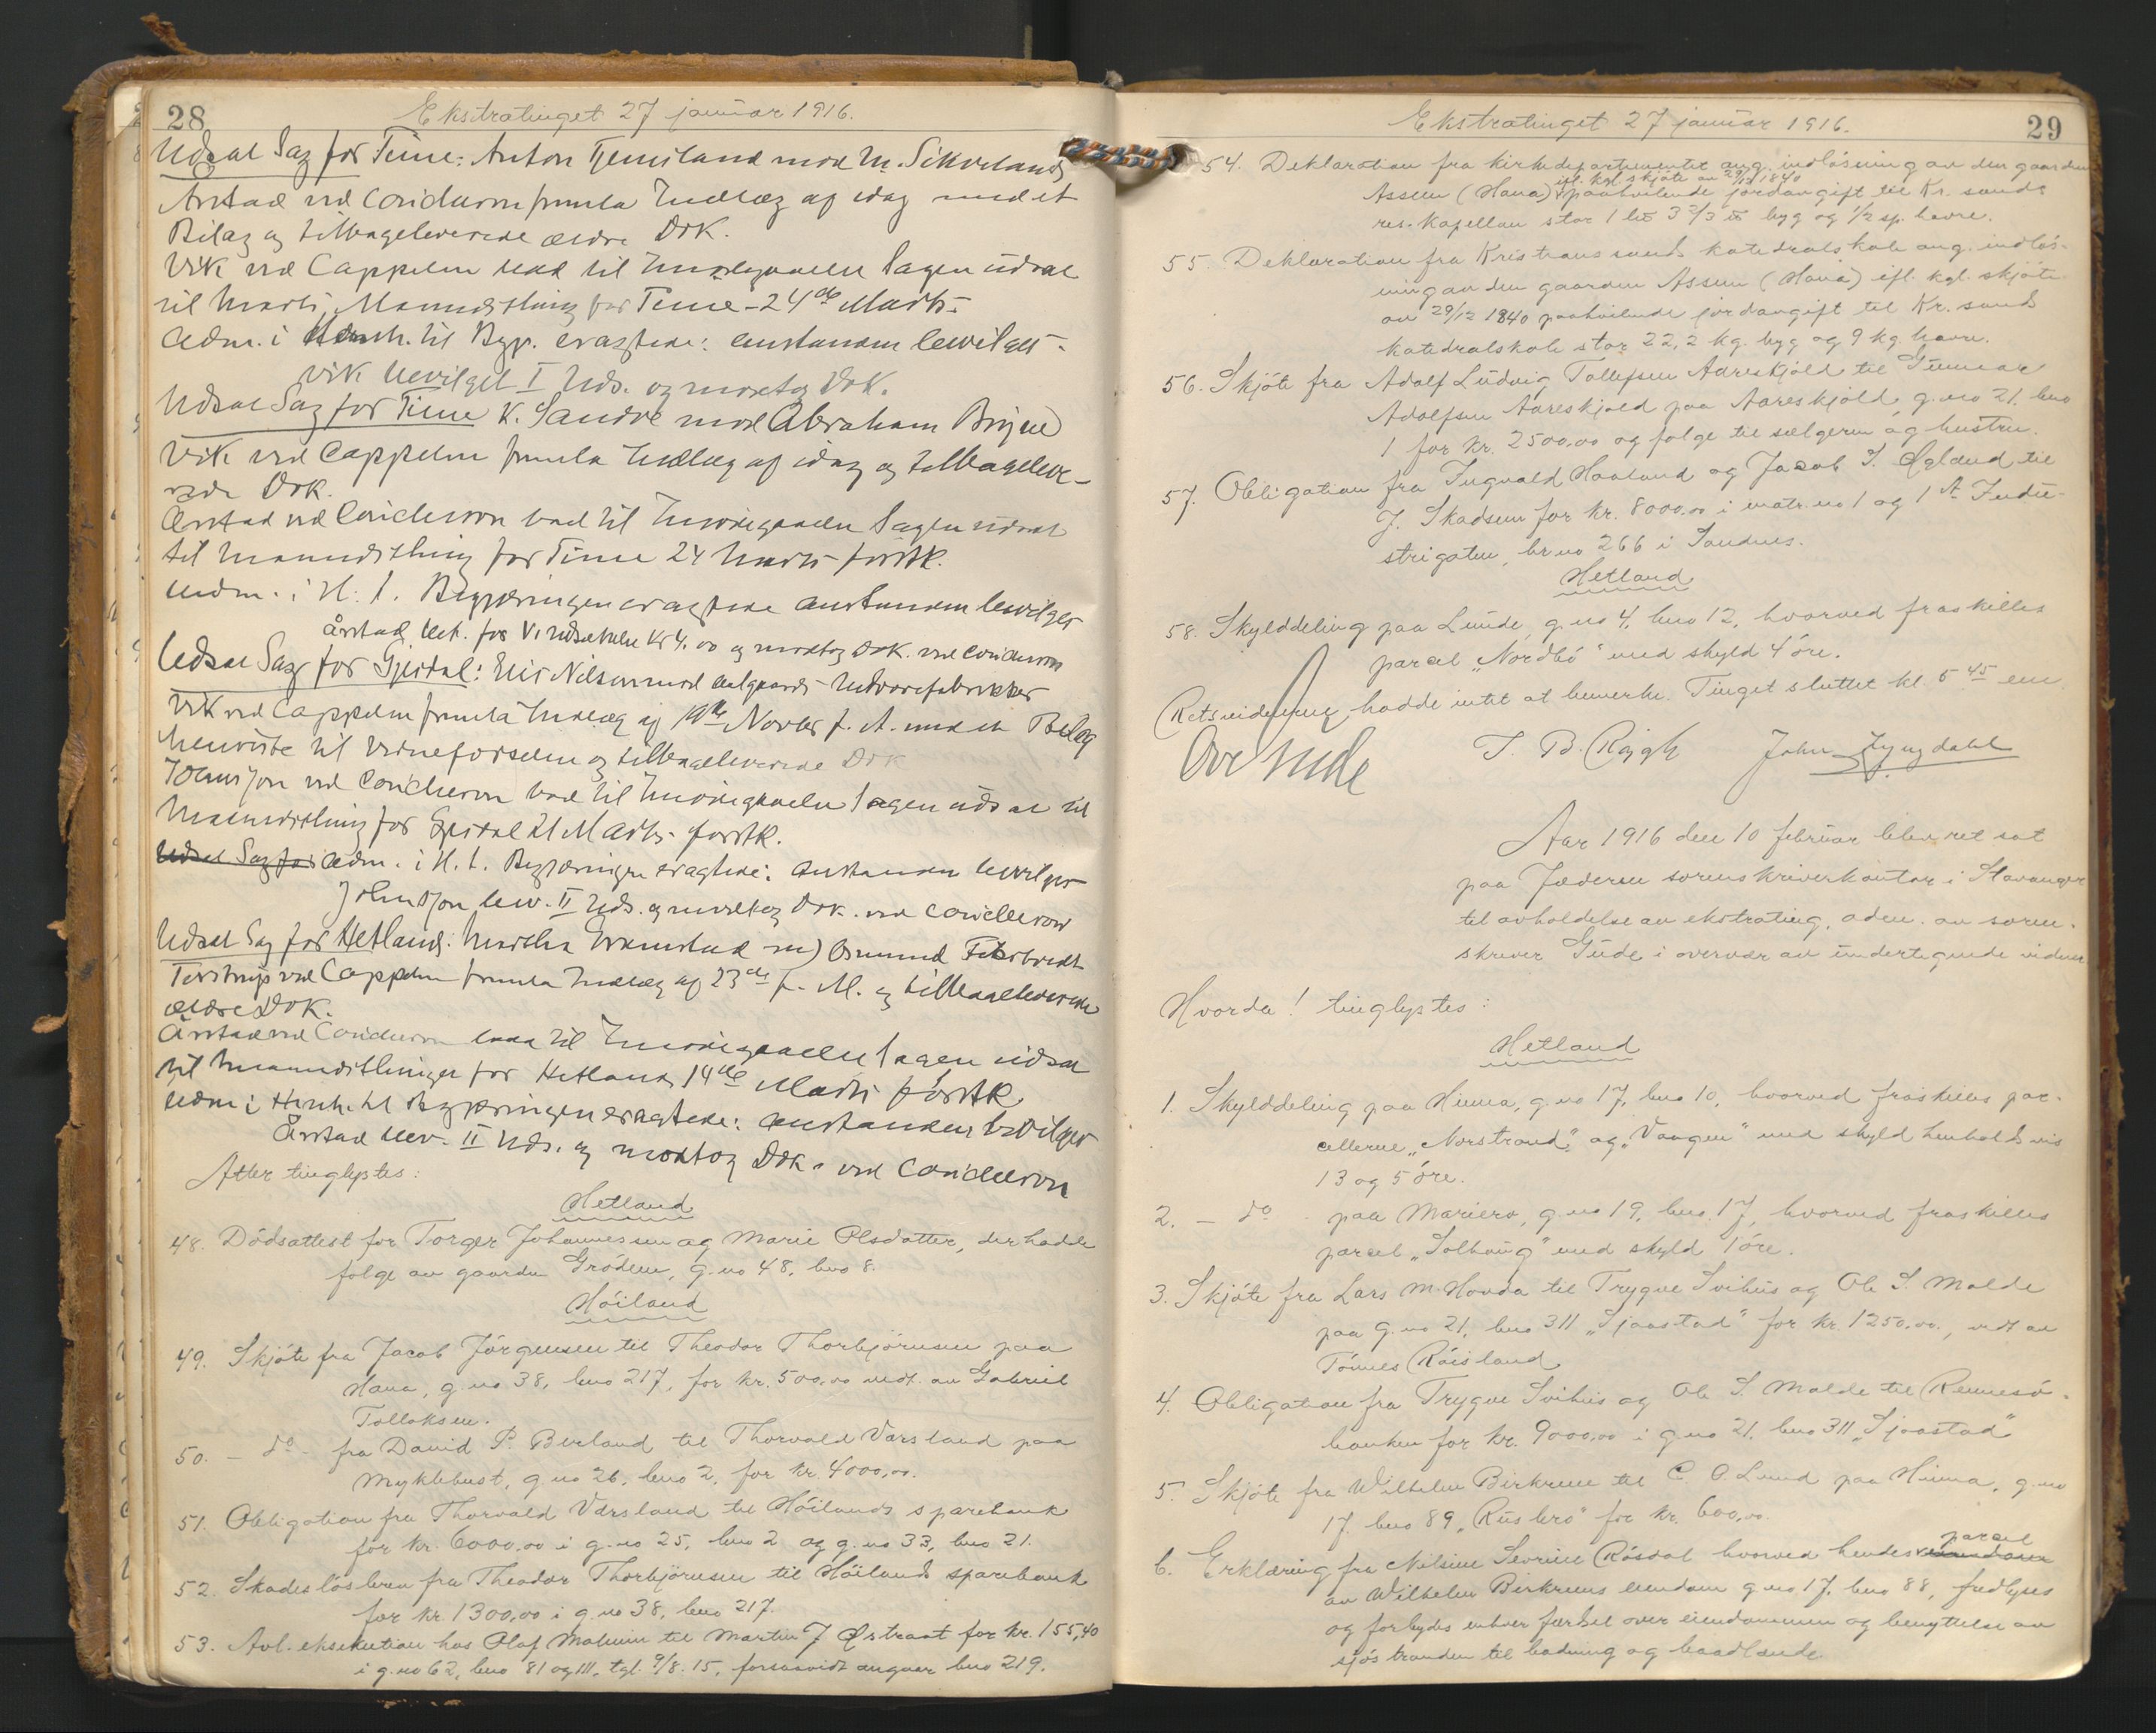 28
Ekstratinget 27 januar 1916.
Udsat Sag for Time: Anton Tjemsland mod M. Sikveland
Årstad ved Coucheron fremla Indlæg af idag med et
Bilag og tilbageleverede ældre Dok.
Vik ved Cappelen bad til Imødegaaelse Sagen udsat
til Marts Maanedsthing for Time - 24de Marts -
Adm. i Henh. til Begj. eragtede: Anstanden bevilges -
Vik bevilget I Uds. og modtog Dok.
Udsat Sag for Time K. Sandve mod Abraham Bryne
Vik ved Cappelen fremla Indlæg af idag og tilbageleve-
rede Dok.
Årstad ved Coucheron bad til Imødegaaelse Sagen udsat
til Maanedsthing for Time 24 Marts førstk.
Adm. i H. t. Begjæringen eragtede Anstanden bevilges
Årstad bet. for V. Udsættelse Kr 4.00 og modtog Dok. ved Coucheron
Udsat Sag for Gjesdal: Elis Nilsen mod Aalgaards Uldvarefabrikker
Vik ved Cappelen fremla Indlæg af 19de Novbr f. A. med et Bilag
henviste til Vidneførselen og tilbageleverede Dok
Johnsson ved Coucheron bad til Imødegaaelse Sagen udsat til
Maanedsthing for Gjesdal 21 Marts førstk.
Udsat Sag for Adm. i H. t. Begjæringen eragtede: Anstanden bevilges
Johnsson bev. II Uds. og modtog Dok. ved Coucheron
Udsat Sag for Hetland: Martha Evenstad m) Osmund
Terstrup ved Cappelen fremla Indlæg af 23de f. M. og tilbageleverede
ældre Dok.
Årstad ved Coucheron bad til Imødegaaelse Sagen udsat
til Maanedsthinget for Hetland 14de Marts førstk
Adm i Henh. til Begjæringen eragtede: Anstanden bevilges
Årstad bev. II Uds. og modtog Dok. ved Coucheron
Atter tinglystes:
Hetland
48. Dödsattest for Torger Johannessen og Marie Olsdatter, der hadde
folge av gaarden Grödem, g.no 48, bno 8.
Höiland
49. Skjöte fra Jacob Jörgensen til Theodor Thorbjörnsen paa
Hana, g.no 38, bno 217, for kr. 500,00 vedt. av Gabriel
Tollaksen.
50. - do - fra David P. Berland til Thorvald Varsland paa
Myklebust, g.no 26, bno 2, for kr. 4000,00.
51. Obligation fra Thorvald Varsland til Höilands sparebank
for kr. 6000,00 i g.no 25, bno 2 og g.no 33, bno 21.
52. Skadeslösbrev fra Theodor Thorbjörnsen til Höilands sparebank
for kr. 1300,00 i g.no 38, bno 217.
53. Avl. eksekution hos Olaf Malmin til Martin J Østraat for kr. 155,40
i g.no 62, bno 81 og 111, tgl. 9/8. 15, forsaavidt angaar bno 219.
29
Ekstratinget 27 januar 1916.
54. Deklaration fra kirkedepartementet ang. indlösning av den gaarden
Assen (Hana) ifl. kgl. skjöte av 29/12 1840 paahvilende jordavgift til Kr. sands
res. kapellan stor 1 bto 3 2/3 ℔ byg og 1/2 sp. havre.
55. Deklaration fra Kristianssands katedralskole ang. indlös-
ning av den gaarden Assen (Hana) ifl. kgl. skjöte
av 29/12 1840 paahvilende jordavgift til Kr. sands
katedralskole stor 22,2 kg. byg og 9 kg havre.
56. Skjöte fra Adolf Ludvig Tollefsen Aareskjold til Gunnar
Adolfsen Aareskjold paa Aareskjold, g.no 21, bno
1 for kr. 2500,00 og folge til sælgeren og hustru.
57. Obligation fra Ingvald Haaland og Jacob I. Øglænd til
J. Skadsem for kr. 8000.00 i matr. no 1 og 1 A Indu-
strigaten, br.no 266 i Sandnes.
Hetland
58. Skylddeling paa Lunde, g.no 4, bno 12, hvorved fraskilles
parcel „Nordbö" med skyld 4 öre.
Retsvidnerne hadde intet at bemerke. Tinget sluttet kl. 5 45 em.
Ove Gude T. B. Rygh John Lyngdahl
Aar 1916 den 10 februar blev ret sat
paa Jæderen sorenskriverkontor i Stavanger
til avholdelse av ekstrating, adm. av soren-
skriver Gude i overvær av undertegnede vidner
Hvorda! tinglystes:
Hetland
1. Skylddeling paa Hinna, g.no 17, bno 10, hvorved fraskilles par-
cellerne „Norstrand", og „Vaagen" med skyld henholdsvis
13 og 5 öre.
2. - do - paa Mariero, g.no 19, bno 17, hvorved fraskilles
parcel „Solhaug" med skyld 1 öre.
3. Skjöte fra Lars M. Hovda til Trygve Svihus og Ole S. Malde
paa g.no 21, bno 311 „Sjaastad" for kr. 1250.00, vedt av
Tönnes Röisland
4. Obligation fra Trygve Svihus og Ole S. Malde til Rennesö-
banken for kr. 9000,00 i g.no 21, bno 311 „Sjaastad"
5. Skjöte fra Wilhelm Birkrem til C. O. Lund paa Hinna, g.no
17 bno 89 „Rusbro" for kr. 600,00.
6. Erklæring fra Nilsine Sevrine Rösdal hvorved hendes parcel
av Wilhelm Birkrems eiendom g.no 17, bno 88, fredlyses
og forbydes enhver færdsel over eiendommen og benyttelse av
sjöstranden til badning og baadlænde